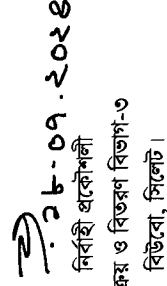 ২৮-০৭.২০২৪
নির্বাহী প্রকৌশলী
ক্রয় ও বিতরণ বিভাগ-৩
বিউবো, সিলেট।